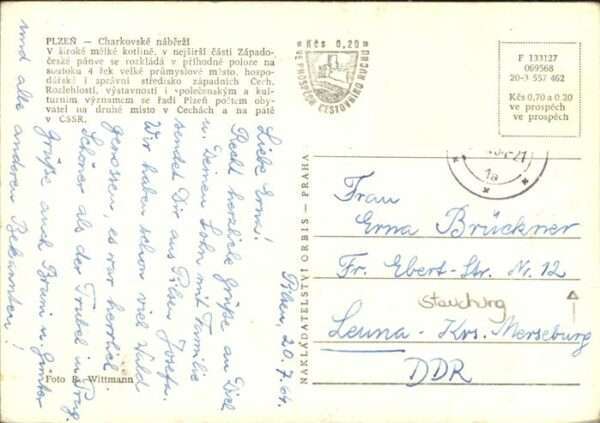 PLZEŇ — Charkovské nábřeží
V široké mělké kotlině, v nejširší části Západo-
české pánve se rozkládá v příhodné poloze na
soutoku 4 řek velké průmyslové město, hospo-
dářské i správní středisko západních Čech.
Rozlehlostí, výstavností i společenským a kul-
turním významem se řadí Plzeň počtem oby-
vatel na druhé místo v Čechách a na páté
v ČSSR.
Kčs 0,20
VE PROSPĚCH CESTOVNÍHO RUCHU
F 133127
069568
20-3 557 462
Kčs 0,70 a 0.20
ve prospěch
ve prospěch
21
1a
NAKLADATELSTVÍ ORBIS — PRAHA
Pilsen, 20.7.64
Liebe Erna!
Recht herzliche Grüße an Dich
u. Deinen Sohn mit Familie
sendet Dir aus Pilsen Josefa.
Wir haben schon viel Wald
genossen, es war herrlich.
Schöner als der Trubel in Prag.
Grüße auch Bruni u. Günter
und alle anderen Bekannten!
Frau
Erna Brückner
Fr. Ebert-Str. Nr. 12
Leuna - Krs. Merseburg
DDR
Foto R. Wittmann